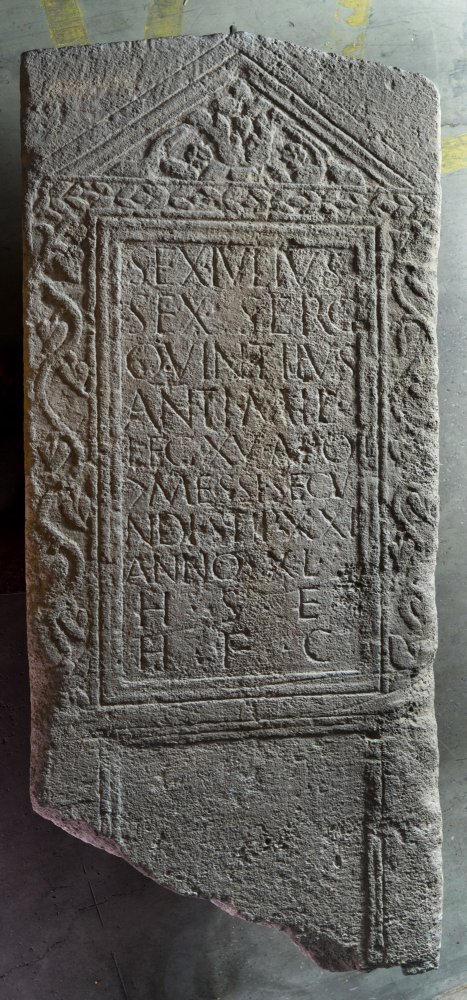 SEX·IVLIVS
SEX· SERG
QVINTILVS
ANTI·MIL·
LEG·XV·APOL
>MESSI·SECV
NDI·STIP·XXI
ANNO·XL
H · S · E
H · F · C